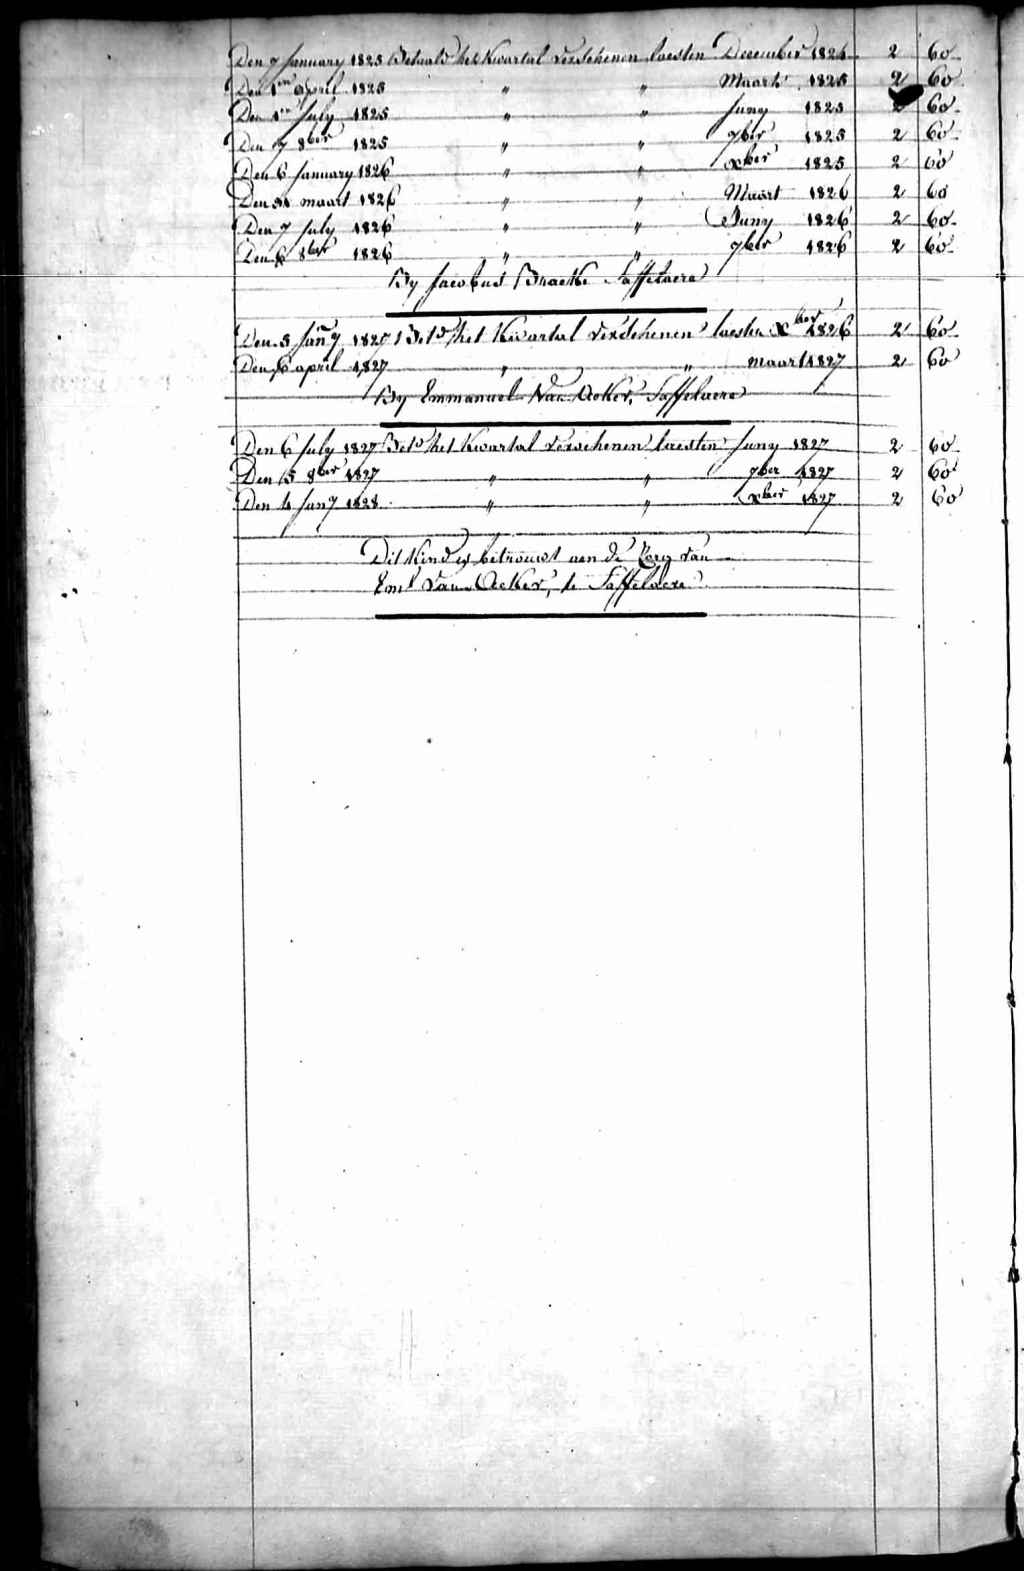 Den 7 January 1825 Betaald het Kwartal verschenen laesten December 1824 2 60
Den 1en April 1825 " " Maart 1825 2 60
Den 1en July 1825 " " Juny 1825 2 60
Den 7 8ber 1825 " " 7ber 1825 2 60
Den 6 January 1826 " " Xber 1825 2 60
Den 31 maart 1826 " " Maart 1826 2 60
Den 7 July 1826 " " Juny 1826 2 60
Den 6 8ber 1826 " " 7ber 1826 2 60
By Jacobus Braeke Saffelaere
Den 3 Jany 1827 Betd het Kwartal verschenen laesten Xber 1826 2 60
Den 6 april 1827 " " maart 1827 2 60
By Emmanuel Van Acker, Saffelaere
Den 6 July 1827 Betd het Kwartal verschenen laesten Juny 1827 2 60
Den 5 8ber 1827 " " 7ber 1827 2 60
Den 4 Jany 1828 " " Xber 1827 2 60
Dit Kind is betrouwt aen de Zorg van
Eml Van Acker, te Saffelaere